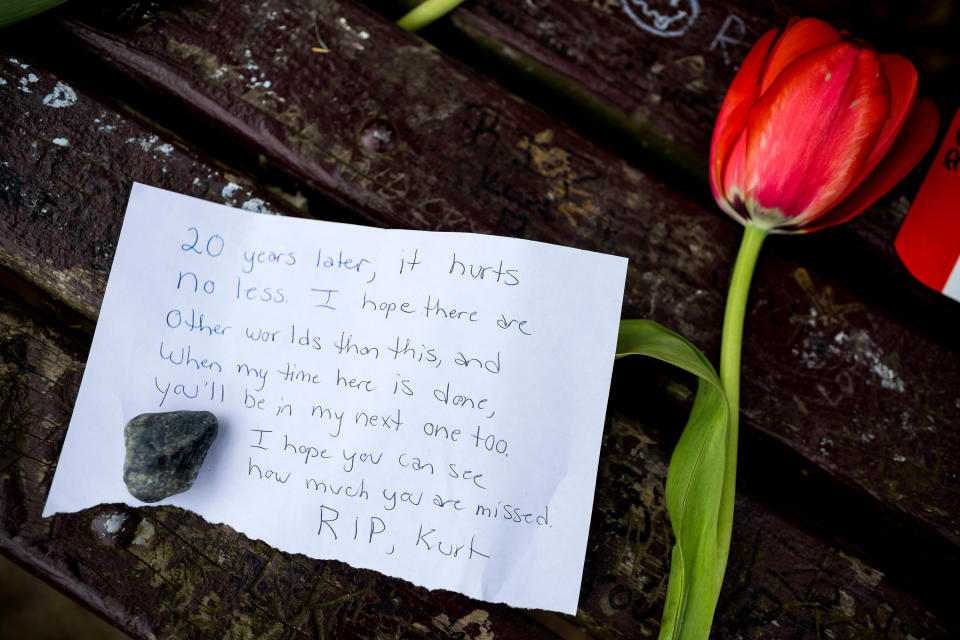 20 years later, it hurts
no less. I hope there are
Other worlds than this, and
When my time here is done,
you'll be in my next one too.
I hope you can see
how much you are missed.
RIP, Kurt